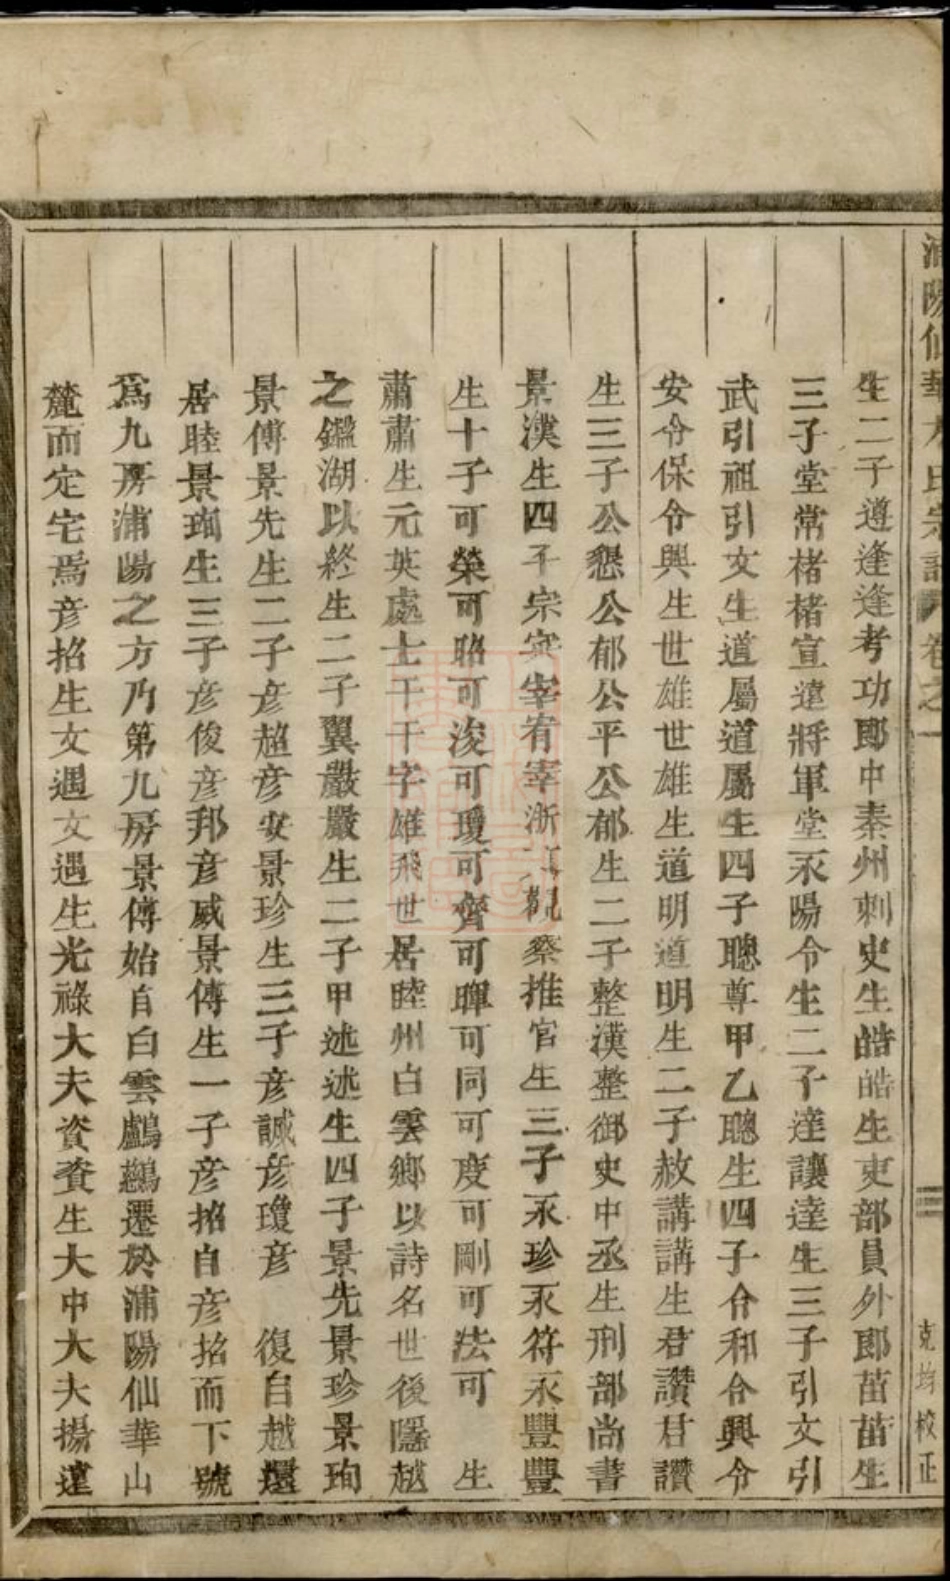 浦陽仙華方氏宗譜 卷之一 克均校正
生二子遵逢逢考功郎中秦州刺史生皓皓生吏部員外郎苗苗生
三子堂常楮楮宣遠將軍堂永陽令生二子達讓達生三子引文引
武引祖引文生道屬道屬生四子聰尊甲乙聰生四子令和令興令
安令保令興生世雄世雄生道明道明生二子赦講講生君讚君讚
生三子公懇公郁公平公郁生二子整漢整御史中丞生刑部尚書
景漢生四子宗實宰宥宰浙觀察推官生三子永珍永符永豐豐
生十子可榮可昭可浚可瓊可齊可暉可同可度可剛可法可 生
肅肅生元英處士干干字雄飛世居睦州白雲鄉以詩名世後隱越
之鑑湖以終生二子翼嚴嚴生二子甲述述生四子景先景珍景珣
景傳景先生二子彦超彦安景珍生三子彦誠彦瓊彦 復自越還
居睦景珣生三子彦俊彦邦彦威景傳生一子彦招自彦招而下號
爲九房浦陽之方乃第九房景傳始自白雲鸕鷀遷於浦陽仙華山
麓而定宅焉彦招生文遇文遇生光祿大夫資資生大中大夫揚遠